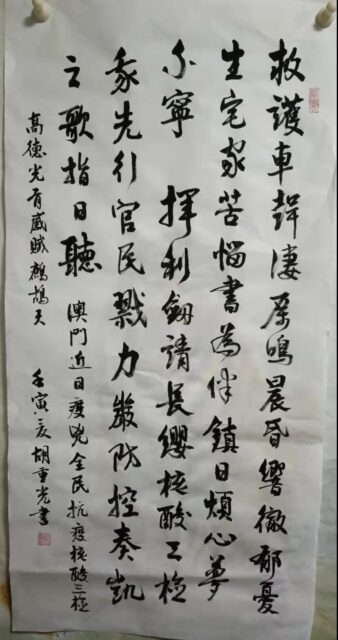 救護車聲凄厉鳴晨昏響徹郁憂
生宅家苦惱書為伴鎮日煩心夢
不寧 揮利劒請長纓核酸三檢
我先行官民戮力嚴防控奏凱
之歌指日聽 澳門近日疫兇全民抗疫核酸三檢
高德光有感賦鷓鴣天 壬寅夏胡重光書